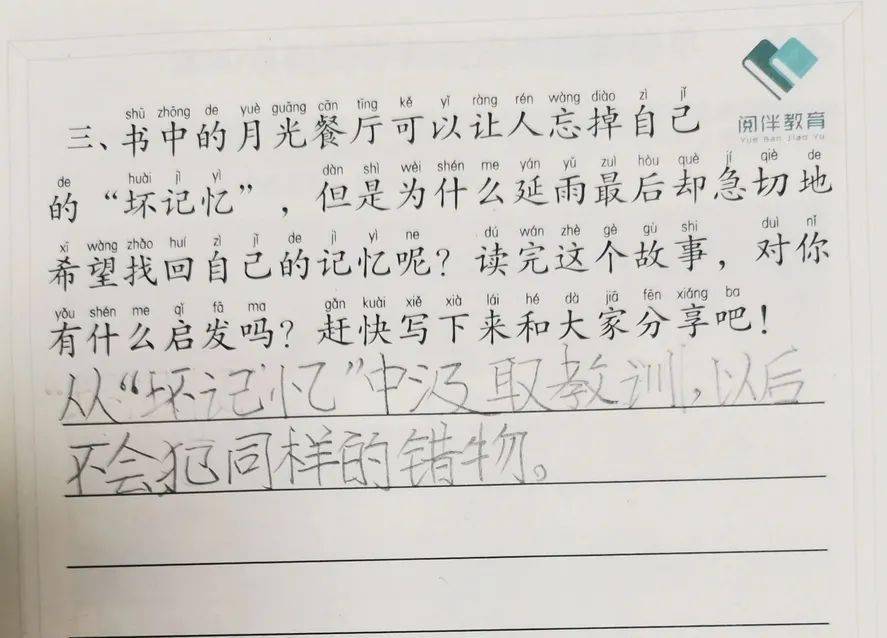 阅伴教育
Yue Ban Jiao Yu
shū zhōng de yuè guāng cān tīng kě yǐ ràng rén wàng diào zì jǐ
三、书中的月光餐厅可以让人忘掉自己
de huài jì yì dàn shì wèi shén me yán yǔ zuì hòu què jí qiè de
的“坏记忆”，但是为什么延雨最后却急切地
xī wàng zhǎo huí zì jǐ de jì yì ne dú wán zhè gè gù shi duì nǐ
希望找回自己的记忆呢？读完这个故事，对你
yǒu shén me qǐ fā ma gǎn kuài xiě xià lái hé dà jiā fēn xiǎng ba
有什么启发吗？赶快写下来和大家分享吧！
从“坏记忆”中汲取教训，以后
不会犯同样的错物。